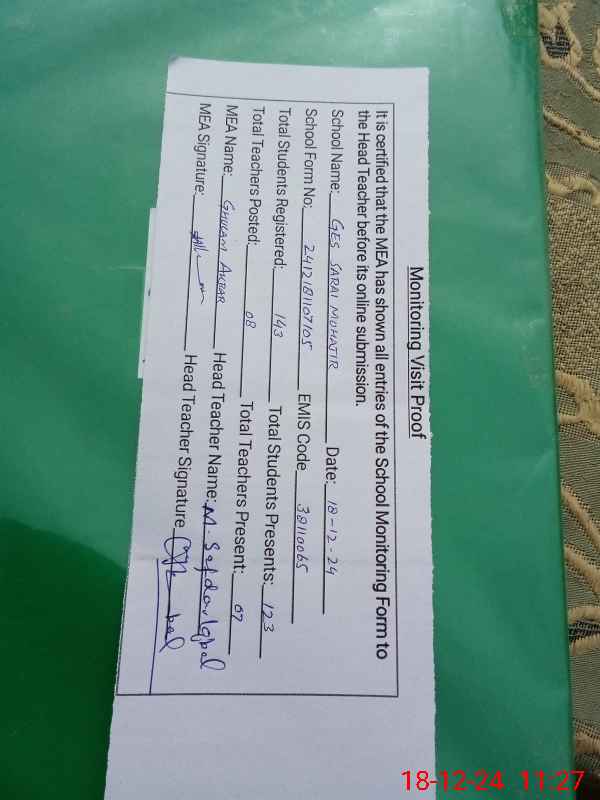 Monitoring Visit Proof
It is certified that the MEA has shown all entries of the School Monitoring Form to
the Head Teacher before its online submission.
School Name: GES SARAI MUHAJIR Date: 18-12-24
School Form No: 2412181107105 EMIS Code 38110065
Total Students Registered: 143 Total Students Presents: 123
Total Teachers Posted: 08 Total Teachers Present: 07
MEA Name: GHULAM AKBAR Head Teacher Name: M. Safdar Iqbal
MEA Signature: Head Teacher Signature
18-12-24 11:27